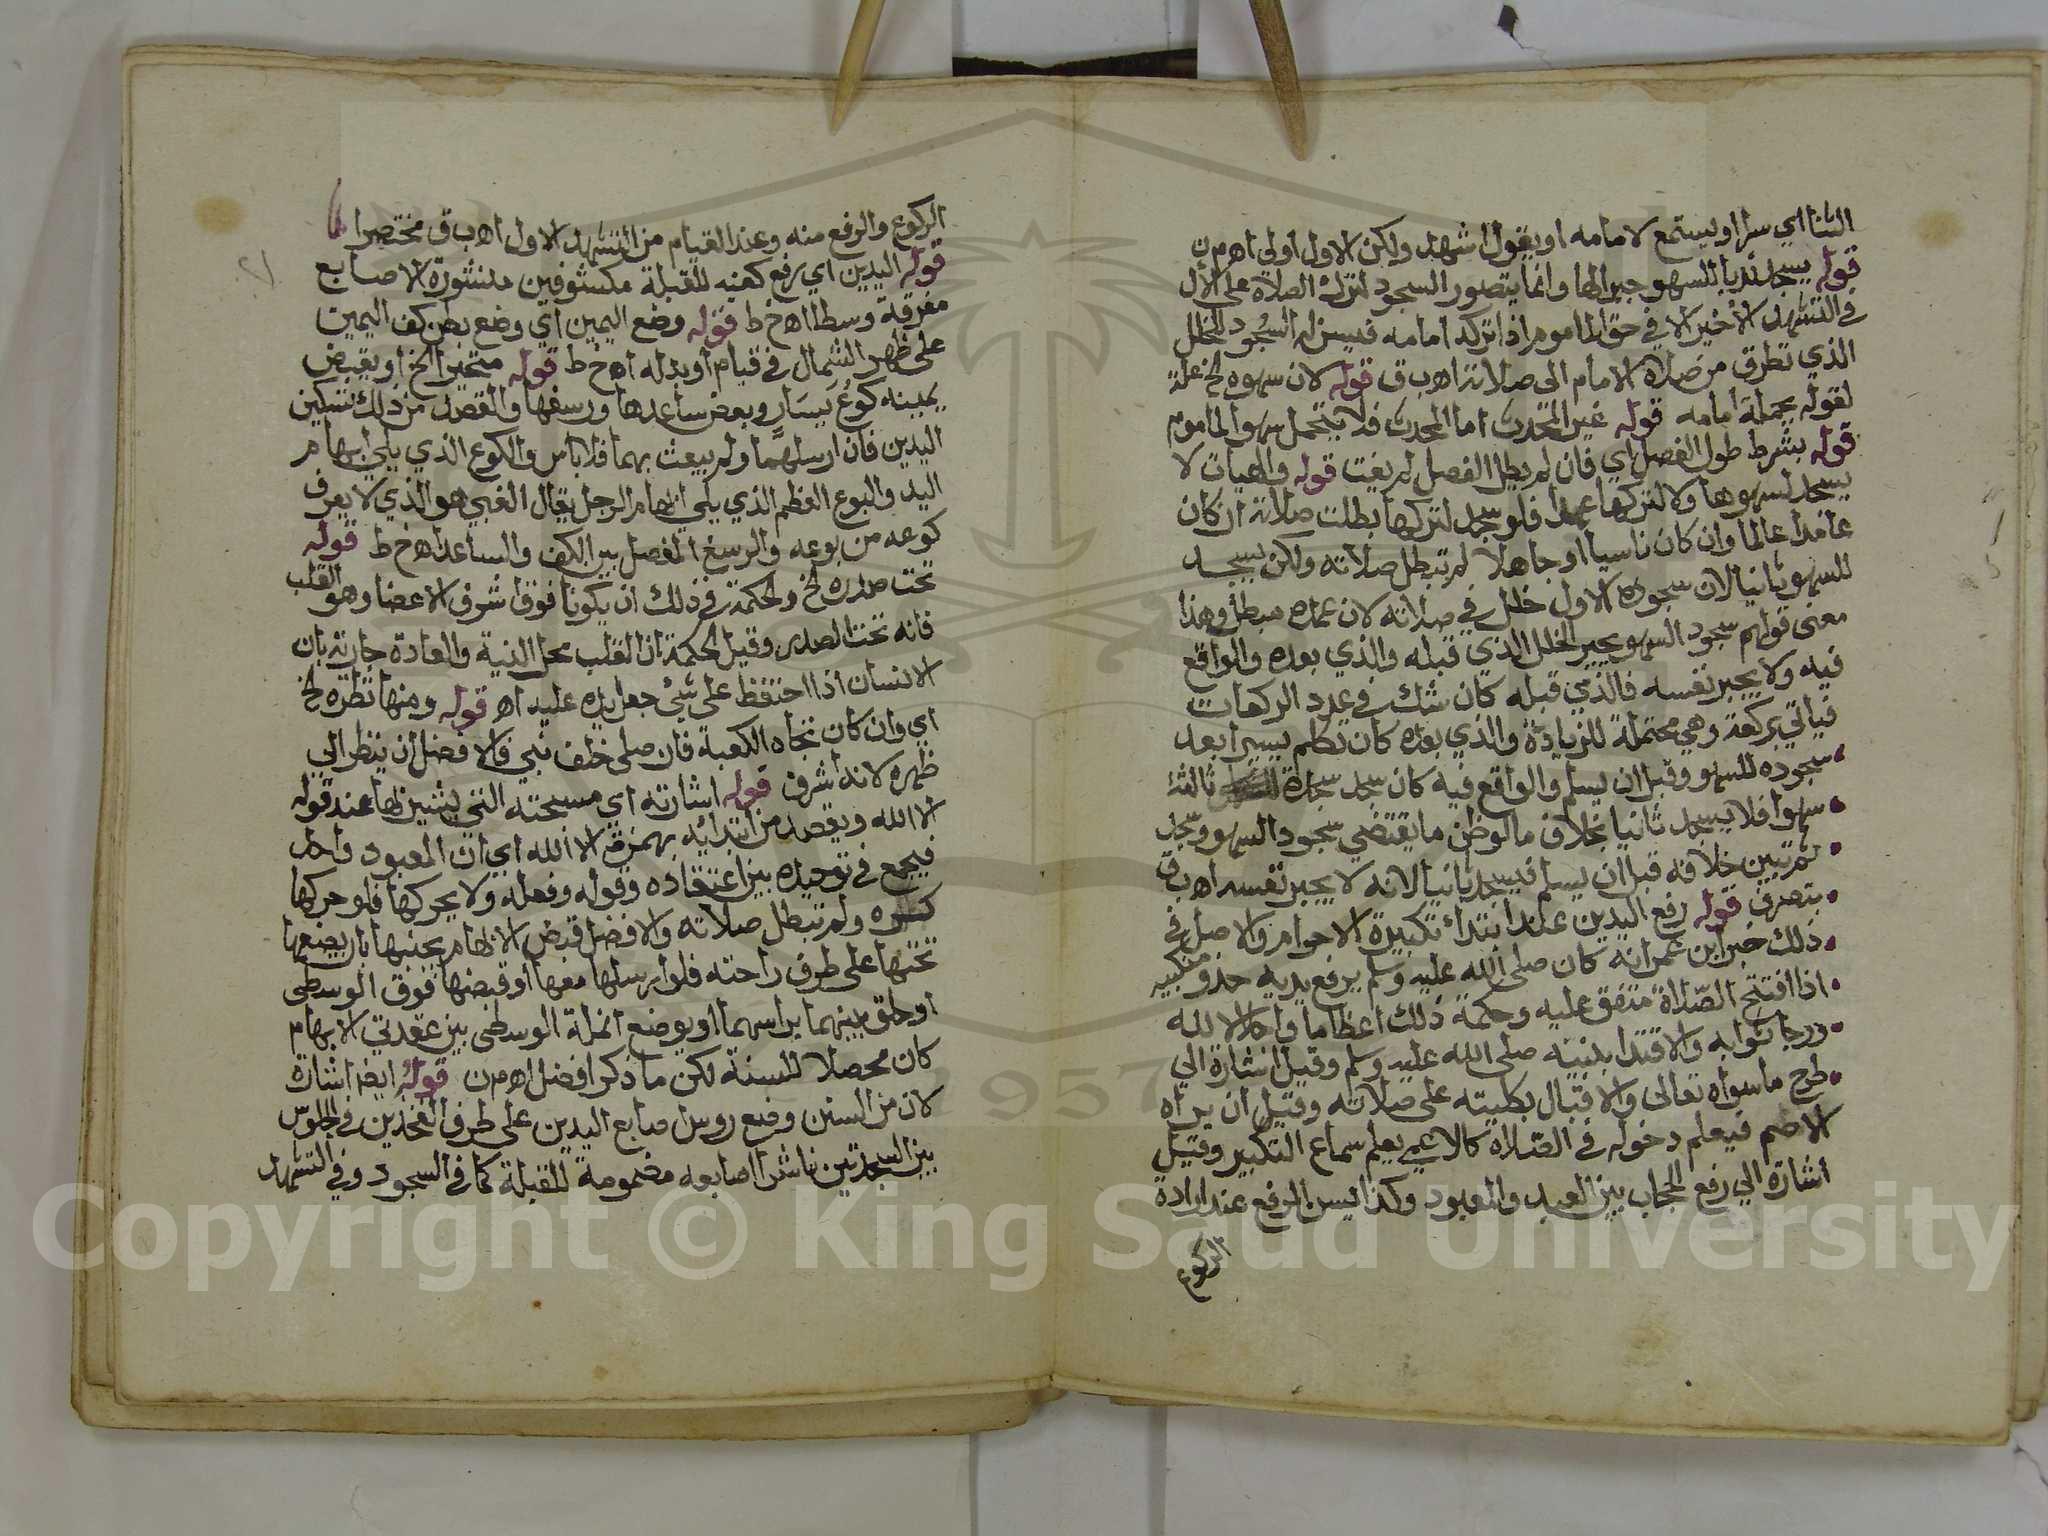 الثنا اي سرا او يستمع لامامه او يقول اشهد ولكن الاول اولى اهـ م ن
قوله يسجد ندبا للسهو جبرا لها وانما يتصور السجود لترك الصلاة على الآل
في التشهد الاخير الا في حق الماموم اذا تركه امامه فيسن له السجود للخلل
الذي تطرق من صلاة الامام الى صلاته اهـ ب ق قوله لان سهوه الخ علة
لقوله يحمله امامه قوله غير المحدث اما المحدث فلا يتحمل سهو الماموم
قوله بشرط طول الفصل اي فان لم يطل الفصل لم يفت قوله والهيات لا
يسجد لسهوها ولا لتركها عمدا فلو سجد لتركها بطلت صلاته ان كان
عامدا عالما وان كان ناسيا او جاهلا لم تبطل صلاته ولكن يسجد
للسهو ثانيا لان سجوده الاول خلل في صلاته لان عمده مبطل وهذا
معنى قولهم سجود السهو يجبر الخلل الذي قبله والذي بعده والواقع
فيه ولا يجبر نفسه فالذي قبله كان شك في عدد الركعات
فياتي بركعة وهي محتملة للزيادة والذي بعده كان تكلم يسيرا بعد
سجوده للسهو وقبل ان يسلم والواقع فيه كان سجد سجدة ثالثة
سهوا فلا يسجد ثانيا بخلاف ما لو ظن ما يقتضي سجود السهو وسجد
ثم تبين خلافه قبل ان يسلم فيسجد ثانيا لانه لا يجبر نفسه اهـ ب ق
بتصرف قوله رفع اليدين عند ابتداء تكبيرة الاحرام والاصل في
ذلك خبر ابن عمر انه كان صلى الله عليه وسلم يرفع يديه حذو منكبيه
اذا افتتح الصّلاة متفق عليه وحكمة ذلك اعظاما واجلالا لله
ورجا ثوابه والاقتدا بنبيه صلى الله عليه وسلم وقيل اشارة الى
طرح ما سواه تعالى والاقبال بكليته على صلاته وقيل ان يراه
الاصم فيعلم دخوله في الصلاة كالاعمى يعلم سماع التكبير وقيل
اشارة الى رفع الحجاب بين العبد والمعبود وكذا يسن الرفع عند ارادة
الركوع
الركوع والرفع منه وعند القيام من التشهد الاول اهـ ب ق مختصرا
قوله اليدين اي رفع كفيه للقبلة مكشوفين منشورة الاصابع
مفرقة وسطا اهـ خ ط قوله وضع اليمين اي وضع بطن كف اليمين
على ظهر الشمال في قيام او بدله اهـ خ ط قوله متخير الخ او يقبض
بيمينه كوع يسار وبعض ساعدها ورسغها والقصد من ذلك تسكين
اليدين فان ارسلهما ولم يبعث بهما فلا باس والكوع الذي يلي ابهام
اليد والبوع العظم الذي يلي ابهام الرجل يقال الغبي هو الذي لا يعرف
كوعه من بوعه والرسغ المفصل بين الكف والساعد اهـ خ ط قوله
تحت صدره الخ والحكمة في ذلك ان يكونا فوق اشرف الاعضا وهو القلب
فانه تحت الصدر وقيل الحكمة ان القلب محل النية والعادة جارية بان
الانسان اذا احتفظ على شيء جعل يده عليه اهـ قوله ومنها نظره الخ
اي وان كان تجاه الكعبة فان صلى خلف نبي فالافضل ان ينظر الى
ظهره لانه اشرف قوله اشارته اي مسبحته التي يشير بها عند قوله
الا الله ويقصد من ابتدائه بهمزة الا الله اي ان المعبود واحد
فيجمع في توحيده بين اعتقاده وقوله وفعله ولا يحركها فلو حركها
كره ولم تبطل صلاته والافضل قبض الابهام بجنبها بان يضعها
تحتها على طرف راحته فلو ارسلها معها او قبضها فوق الوسطى
او حلق بينهما براسهما او بوضع انملة الوسطى بين عقدتي الابهام
كان محصلا للسنة لكن ما ذكر افضل اهـ م ن قوله ايضا اشارة
لان من السنن وضع روس اصابع اليدين على طرف الفخذين في الجلوس
بين السجدتين ناشرا اصابعه مضمومة للقبلة كما في السجود وفي التشهد
Copyright © King Saud University
1957